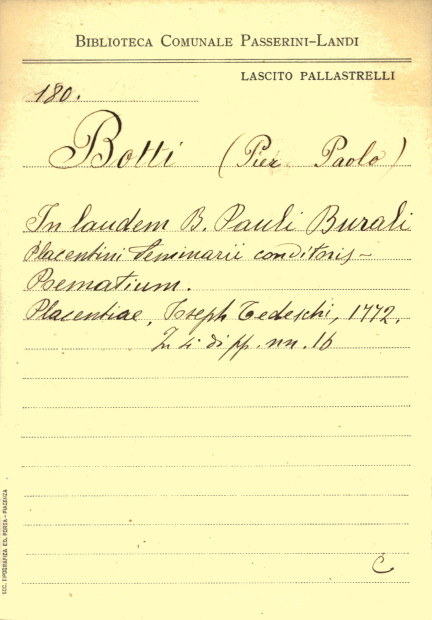 BIBLIOTECA COMUNALE PASSERINI-LANDI
LASCITO PALLASTRELLI
180.
Botti (Pier Paolo)
In laudem B. Pauli Burali
Placentini Seminarii conditoris -
Poematium.
Placentiae, Joseph Tedeschi, 1772.
In 4. di pp. nn. 16
C
SOC. TIPOGRAFICA ED. PORTA - PIACENZA